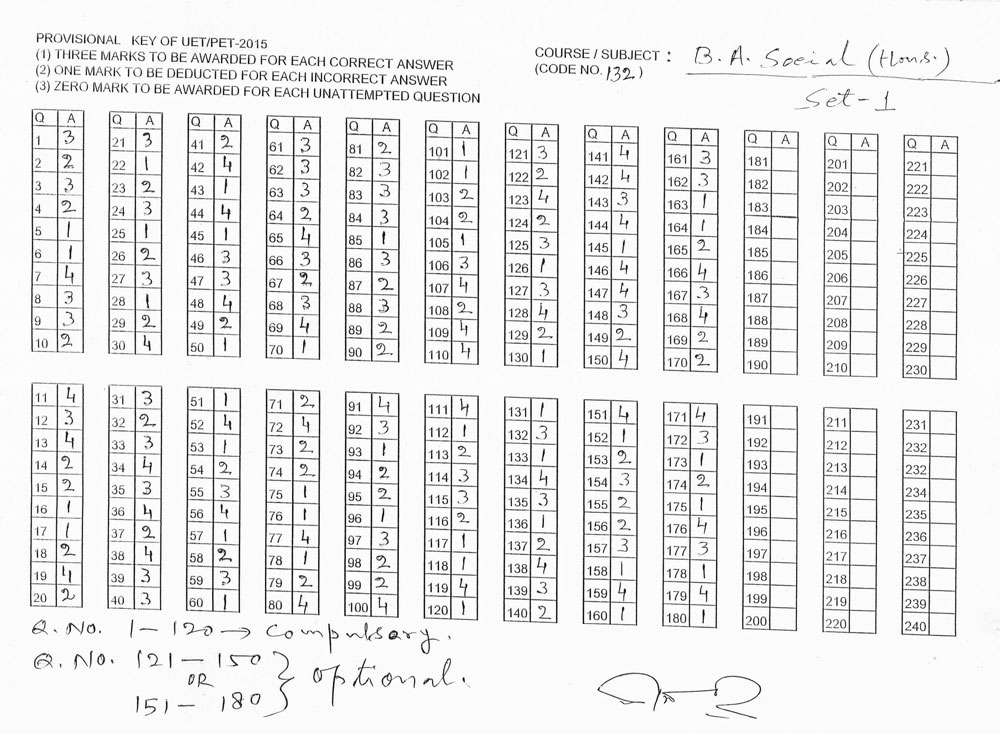 PROVISIONAL KEY OF UET/PET-2015
(1) THREE MARKS TO BE AWARDED FOR EACH CORRECT ANSWER
(2) ONE MARK TO BE DEDUCTED FOR EACH INCORRECT ANSWER
(3) ZERO MARK TO BE AWARDED FOR EACH UNATTEMPTED QUESTION
COURSE / SUBJECT : B. A. Social (Hons.)
(CODE NO. 132)
Set-1
Q A Q A Q A Q A Q A Q A Q A Q A Q A Q A Q A Q A
1 3 21 3 41 2 61 3 81 2 101 1 121 3 141 4 161 3 181 201 221
2 2 22 1 42 4 62 3 82 3 102 1 122 2 142 4 162 3 182 202 222
3 3 23 2 43 1 63 3 83 3 103 2 123 4 143 3 163 1 183 203 223
4 2 24 3 44 4 64 2 84 3 104 2 124 2 144 4 164 1 184 204 224
5 1 25 1 45 1 65 4 85 1 105 1 125 3 145 1 165 2 185 205 225
6 1 26 2 46 3 66 3 86 3 106 3 126 1 146 4 166 4 186 206 226
7 4 27 3 47 3 67 2 87 2 107 4 127 3 147 4 167 3 187 207 227
8 3 28 1 48 4 68 3 88 3 108 2 128 4 148 3 168 4 188 208 228
9 3 29 2 49 2 69 4 89 2 109 4 129 2 149 2 169 2 189 209 229
10 2 30 4 50 1 70 1 90 2 110 4 130 1 150 4 170 2 190 210 230
11 4 31 3 51 1 71 2 91 4 111 4 131 1 151 4 171 4 191 211 231
12 3 32 2 52 4 72 4 92 3 112 1 132 3 152 1 172 3 192 212 232
13 4 33 3 53 1 73 2 93 1 113 2 133 1 153 2 173 1 193 213 233
14 2 34 4 54 2 74 2 94 2 114 3 134 4 154 3 174 2 194 214 234
15 2 35 3 55 3 75 1 95 2 115 3 135 3 155 2 175 1 195 215 235
16 1 36 4 56 4 76 1 96 1 116 2 136 1 156 2 176 4 196 216 236
17 1 37 2 57 1 77 4 97 3 117 1 137 2 157 3 177 3 197 217 237
18 2 38 4 58 2 78 1 98 2 118 1 138 4 158 1 178 1 198 218 238
19 4 39 3 59 3 79 2 99 2 119 4 139 3 159 4 179 4 199 219 239
20 2 40 3 60 1 80 4 100 4 120 1 140 2 160 1 180 1 200 220 240
Q. No. 1 - 120 → Compulsary.
Q. No. 121 - 150
OR
151 - 180
} optional.